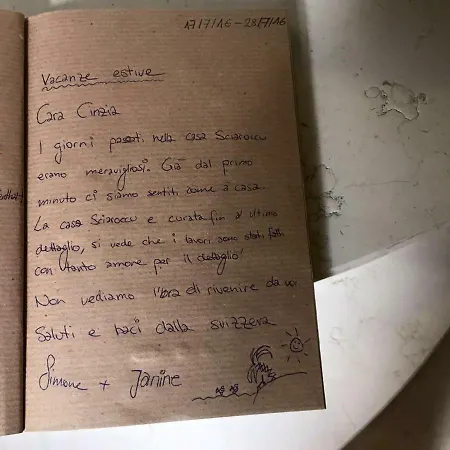 17/7/16 - 28/7/16
Vacanze estive
Cara Cinzia
I giorni passati nella casa Sciaroccu
erano meravigliosi. Già dal primo
minuto ci siamo sentiti come a casa.
La casa Sciaroccu e curata fin l'ultimo
dettaglio, si vede che i lavori sono stati fatti
con tanto amore per il dettaglio!
Non vediamo l'ora di rivenire da voi
Saluti e baci dalla svizzera
Simone + Janine